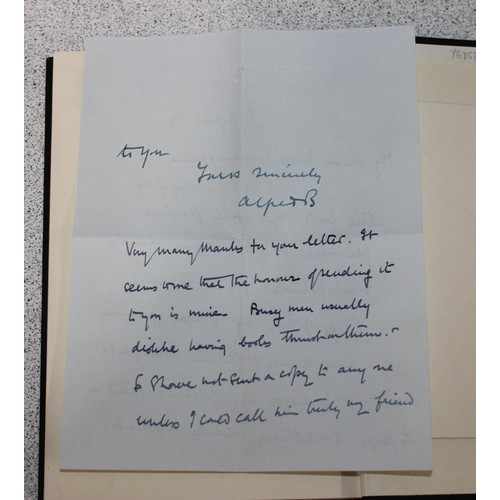 to you
Yours sincerely
Alfred B
Very many thanks for your letter. It
seems to me that the honour of sending it
to you is mine. Busy men usually
dislike having books thrust on them. &
so I have not sent a copy to any one
unless I could call him truly my friend